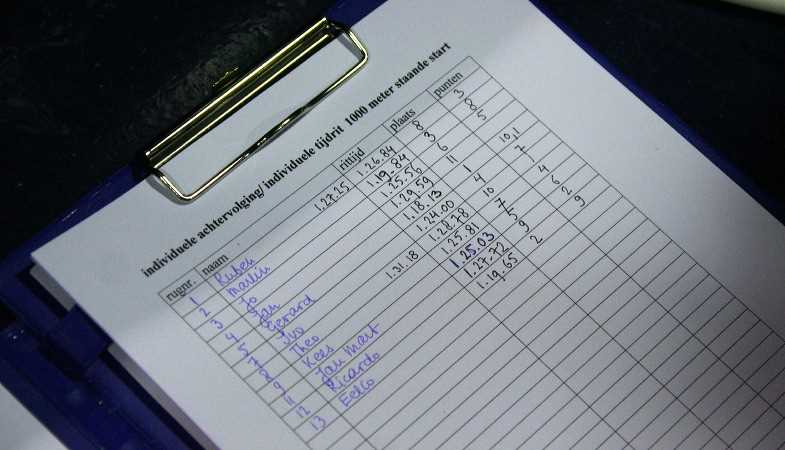 individuele achtervolging/ individuele tijdrit 1000 meter staande start
rugnr. naam rittijd plaats punten
1 Ruben 1.27.25 1.26.84 8 3
2 Martin 1.19.84 3 8
3 Jo 1.25.56 6 5
4 Jan 1.29.59 11
5 Gerard 1.18.13 1 10,1
7 Ivo 1.24.00 4 7
8 Theo 1.31.18 1.28.78 10 1
9 Kees 1.25.81 7 4
11 Jan Mart 1.25.03 5 6
12 Ricardo 1.27.72 9 2
13 Eelco 1.19.65 2 9